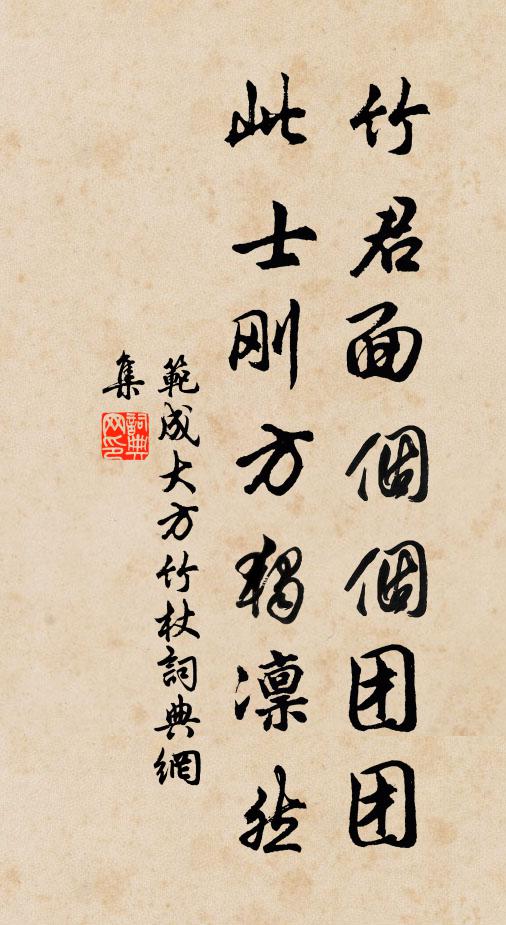 竹君面個個团团
此士刚方獨凛然
範成大方竹杖詞典網
集
詞典
网印